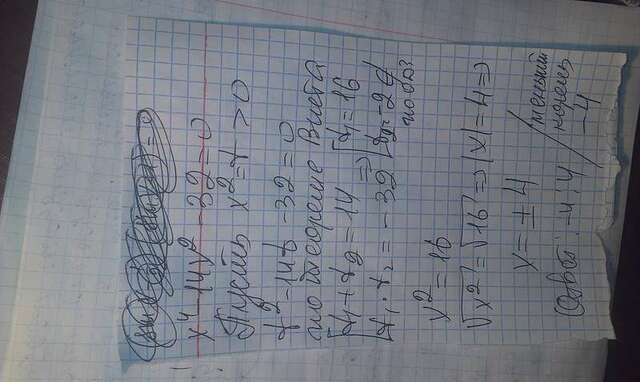 x⁴ - 14x² - 32 = 0
Пусть x² = t > 0
t² - 14t - 32 = 0
по теореме Виета
[t₁ + t₂ = 14 ⇒ [t₁ = 16
[t₁ · t₂ = -32 [t₂ = -2 ∉
по обз
x² = 16
√x² = √16 ⇒ |x| = 4 ⇒
x = ± 4
Ответ: -4; 4 / меньший
корень
-4